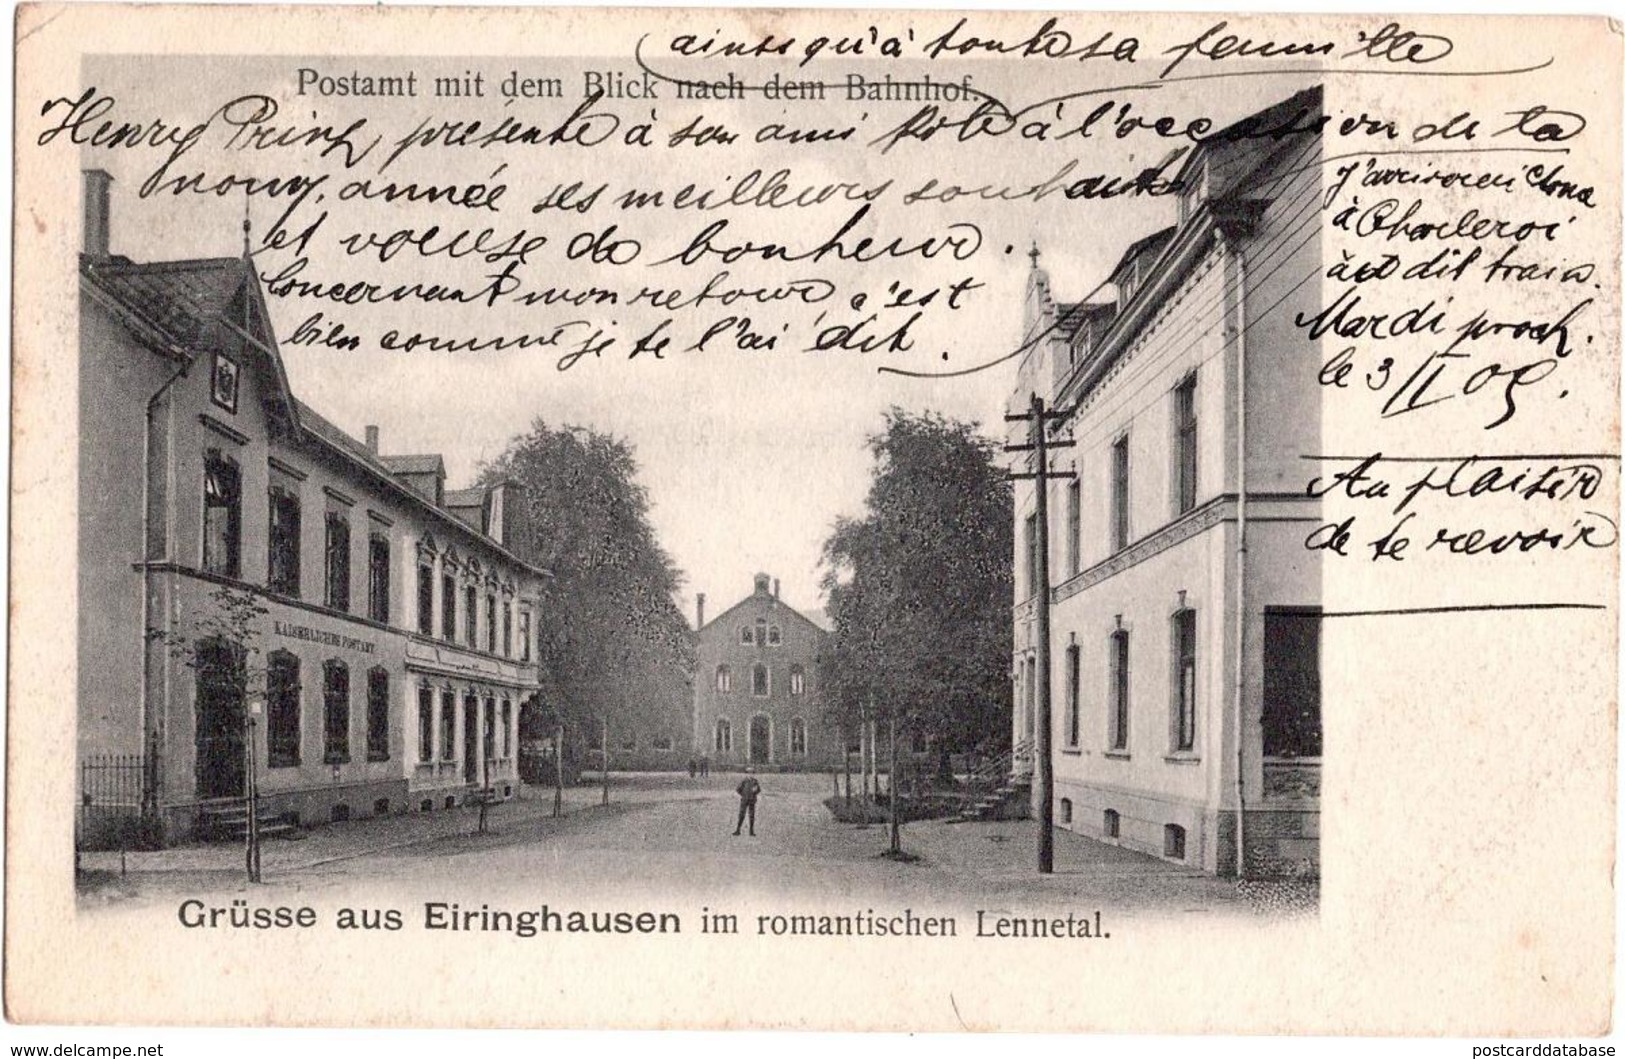 ainsi qu'à toute sa famille
Postamt mit dem Blick nach dem Bahnhof.
Henry Prinz présente à son ami à l'occasion de la
nouv. année ses meilleurs souhaits
et voeuse de bonheur.
Concernant mon retour, c'est
bien comme je te l'ai dit.
J'arriverai
à Charleroi
dit train.
Mardi proch.
le 3/I 05.
Au plaisir
de te revoir
KAISERLICHES POSTAMT.
Grüsse aus Eiringhausen im romantischen Lennetal.
delcampe.net
postcarddatabase